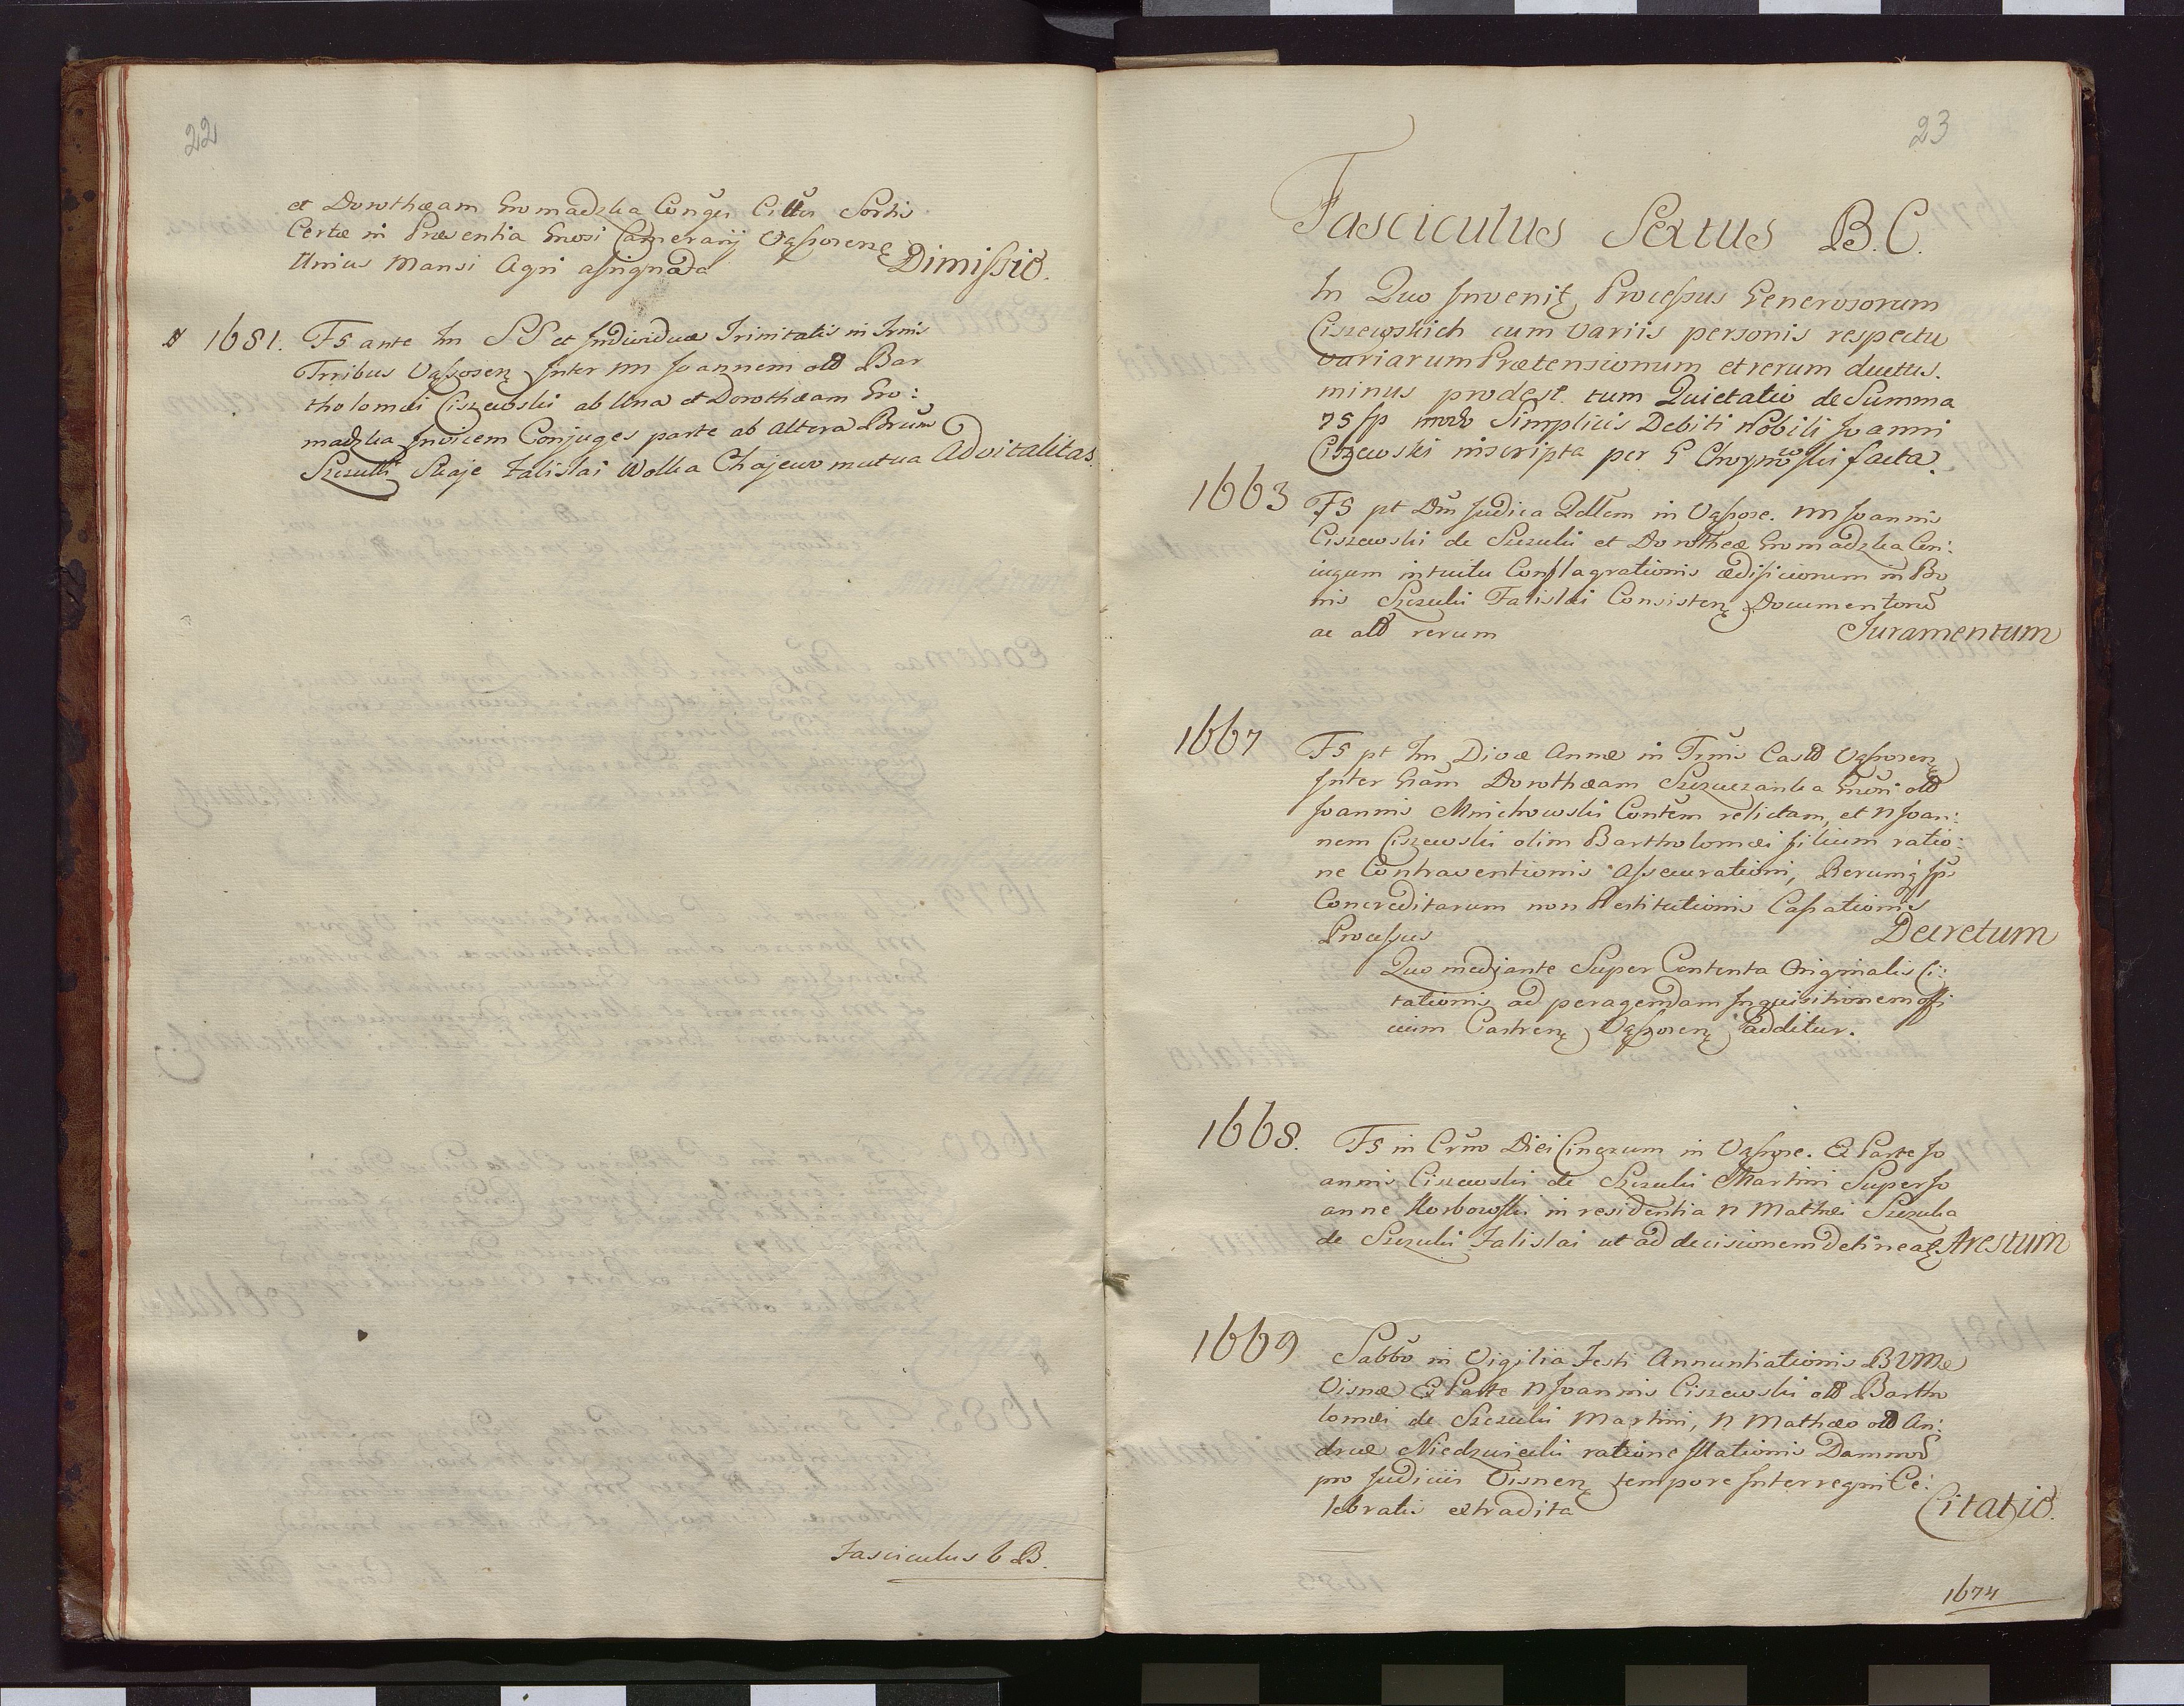 22
et Dorothæam Gromadzka Conges Cittes Sortis
Certæ in Præsentia Gnosi Camerarij Vąsosenę
Unius Mansi Agri assignada Dimissio.
1681. F5 ante Fm SS et Individuæ Trinitatis in Trmis
Trribus Vąssosenę Inter NN Joannem old Bar
tholomæi Ciszewski ab Una et Dorothæam Gro:
madzka Invicem Conjuges parte ab altera Brum
Szczulki Skaje Falislai Wolka Chojewo mutua Advitalitas.
Fasciculus 6 B.
23
Fasciculus Sextus B.C.
In Quo Invenitę Processus Generosorum
Ciszewskich cum Variis personis respectu
variarum Prætensionum et rerum ductus.
minus prodest. tum Quietatio de Summa
75 fp modo Simplicis Debiti Nobili Joanni
Ciszewski inscripta per G Chrynowski facta.
1663 F5 pt Dm Judica Qdllem in Vąssose. NN Joannis
Ciszewski de Szczulki et Dorotheæ Gromadzka Con:
iugum intuitu Conflagrationis ædificiorum in Bo
nis Szczulki Falislai Consistenę Documentorū
ac ald rerum Juramentum
1667 F5 pt Fm Divæ Annæ in Trmis Castd Vąssosenę
Inter Gnam Dorothæam Szczuczanka Gnosi old
Joannis Mnichowski Contēm relictam, et N Joan:
nem Ciszewski olim Bartholomæi filium ratio:
ne Contraventionis Assecurationi, Rerumq́ fps
Concreditarum non Restitutionis Cassationis
Processus Decretum
Quo mediante Super Contenta Originalis Ci:
tationis ad peragendam Inquisitionem offi
cium Castrenę Vąssosenę additur.
1668. F5 in Crmo Diei Cinerum in Vąssose. Ex Parte Jo
annis Ciszewski de Szczulki Martini Super Jo
anne Korbowski in residentia N Mathæi Szczuka
de Szczulki Falislai ut ad decisionem detineatę Arestum
1669 Sabbō in Vigilia Festi Annuntiationis BVMæ
Visnæ Ex Parte N Joannis Ciszewski old Bartho
lomæi de Szczulki Martini, N Mathæo old An:
dreæ Niedzwiecki ratione Illationis Damnorū
pro Judiciis Visnenę tempore Interregni Ce:
lebratis extradita Citatio.
1674